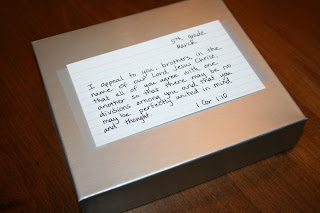 5th grade
March
I appeal to you, brothers, in the
name of our Lord Jesus Christ,
that all of you agree with one
another so that there may be no
divisions among you and that you
may be perfectly united in mind
and thought.
1 Cor 1:10